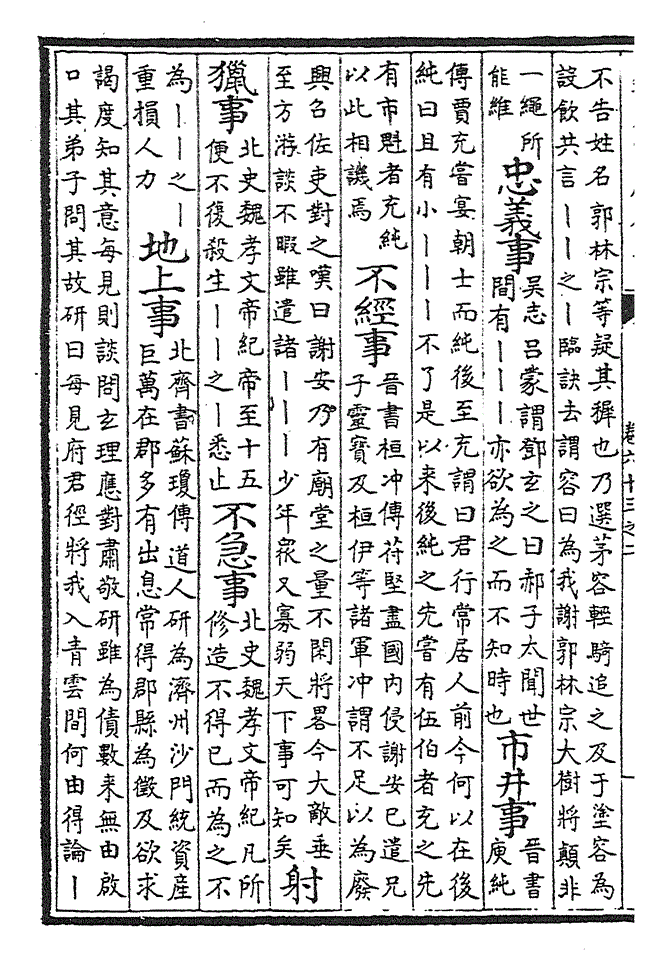 卷六十三之二
不告姓名郭林宗等疑其穉也乃選茅容輕騎追之及于塗容為
設飲共言丨丨之丨臨訣去謂容曰為我謝郭林宗大樹將顛非
一繩所
能維
忠義事
吳志吕蒙謂鄧玄之曰郝子太聞世
間有丨丨丨亦欲為之而不知時也
市井事
晉書
庾純
傳賈充嘗宴朝士而純後至充謂曰君行常居人前今何以在後
純曰且有小丨丨丨不了是以来後純之先嘗有伍伯者充之先
有市魁者充純
以此相譏焉
不經事
晉書桓冲傳苻堅盡國內侵謝安已遣兄
子靈寳及桓伊等諸軍冲謂不足以為廢
興召佐吏對之嘆曰謝安乃有廟堂之量不閑將畧今大敵垂
至方游談不暇雖遣諸丨丨丨少年衆又寡弱天下事可知矣
射
獵事
北史魏孝文帝紀帝至十五
便不復殺生丨丨之丨悉止
不急事
北史魏孝文帝紀凡所
修造不得已而為之不
為丨丨之丨
重損人力
地上事
北齊書蘇瓊傳道人研為濟州沙門統資産
巨萬在郡多有出息常得郡縣為徵及欲求
謁度知其意每見則談問玄理應對肅敬研雖為債數来無由啟
口其弟子問其故研曰每見府君徑將我入青雲間何由得論丨